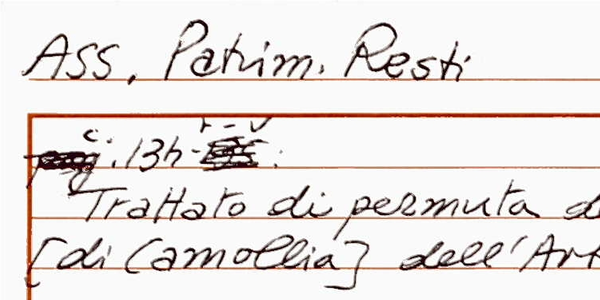 Ass. Patrim. Resti
c. 134 r-v:
Trattato di permuta d
[di Camollia] dell'Art